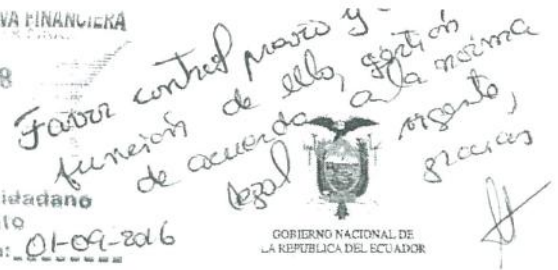 VA FINANCIERA
8
Favor control previo y
función de ello, gestión
de acuerdo a la norma
legal vigente,
gracias
idadano
GOBIERNO NACIONAL DE
LA REPUBLICA DEL ECUADOR
01-09-2016